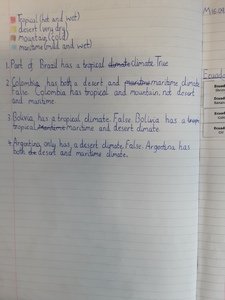 Tropical (hot and wet)
desert (very dry)
mountain (cold)
maritime (mild and wet)
1. Part of Brazil has a tropical climate climate. True
2. Colombia has both a desert and maritime maritime climate.
False. Colombia has tropical and mountain, not desert
and maritime
3. Bolivia has a tropical climate. False. Bolivia has a
tropical Maritime maritime and desert climate.
4. Argentina only has a desert climate. False. Argentina has
both desert and maritime climate.
M16.09
Ecuado